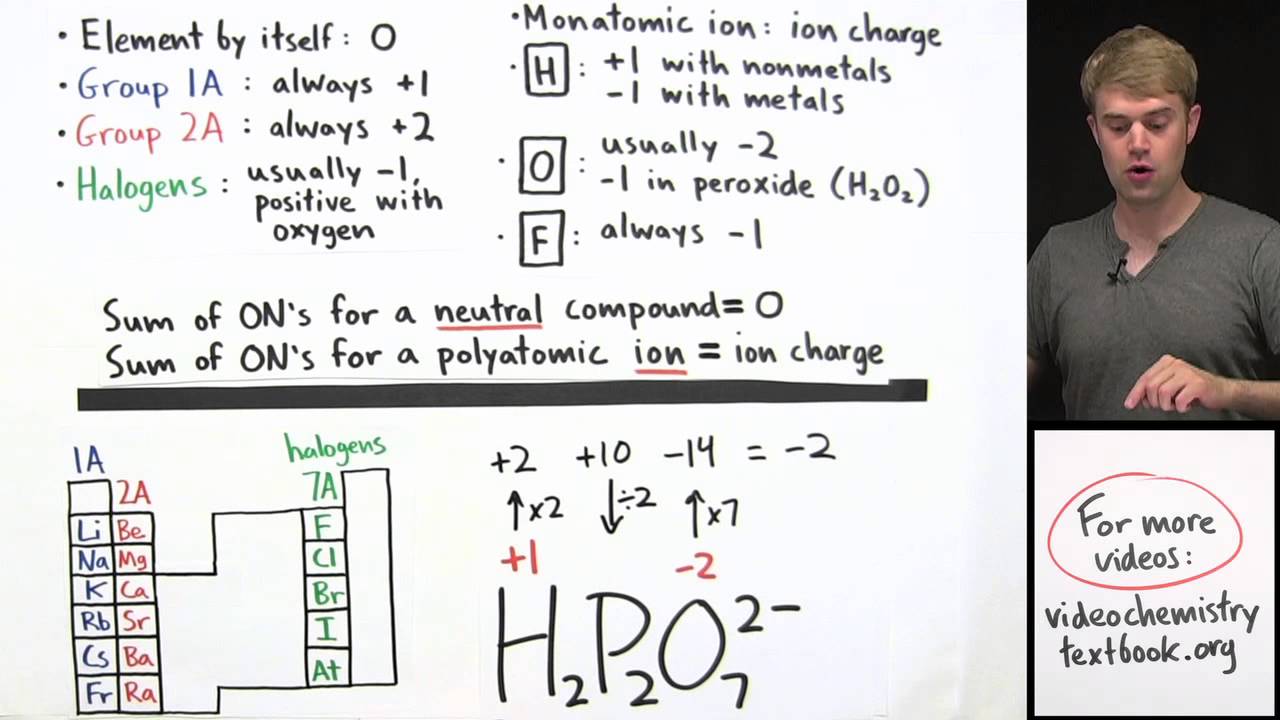 • Element by itself: 0
• Group 1A : always +1
• Group 2A : always +2
• Halogens : usually -1,
positive with
oxygen
• Monatomic ion: ion charge
• H : +1 with nonmetals
-1 with metals
• O : usually -2
-1 in peroxide (H₂O₂)
• F : always -1
Sum of ON's for a neutral compound = 0
Sum of ON's for a polyatomic ion = ion charge
1A
2A
halogens
7A
Li Be
Na Mg
K Ca
Rb Sr
Cs Ba
Fr Ra
F
Cl
Br
I
At
+2 +10 -14 = -2
↑×2 ↓÷2 ↑×7
+1 -2
H₂P₂O₇²⁻
For more
videos:
videochemistry
textbook.org